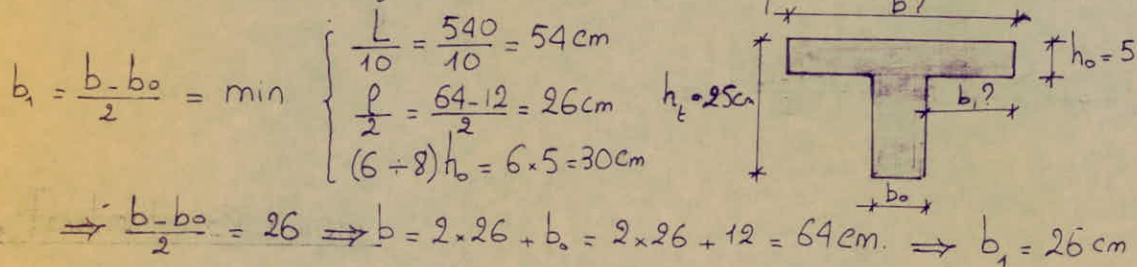 b₁ = (b-b₀)/2 = min { L/10 = 540/10 = 54 cm
ρ/2 = (64-12)/2 = 26 cm
(6÷8) h₀ = 6×5 = 30 cm
b?
h₀ = 5
hₜ = 25 cm
b₁?
b₀
⇒ (b-b₀)/2 = 26 ⇒ b = 2×26 + b₀ = 2×26 + 12 = 64 cm. ⇒ b₁ = 26 cm